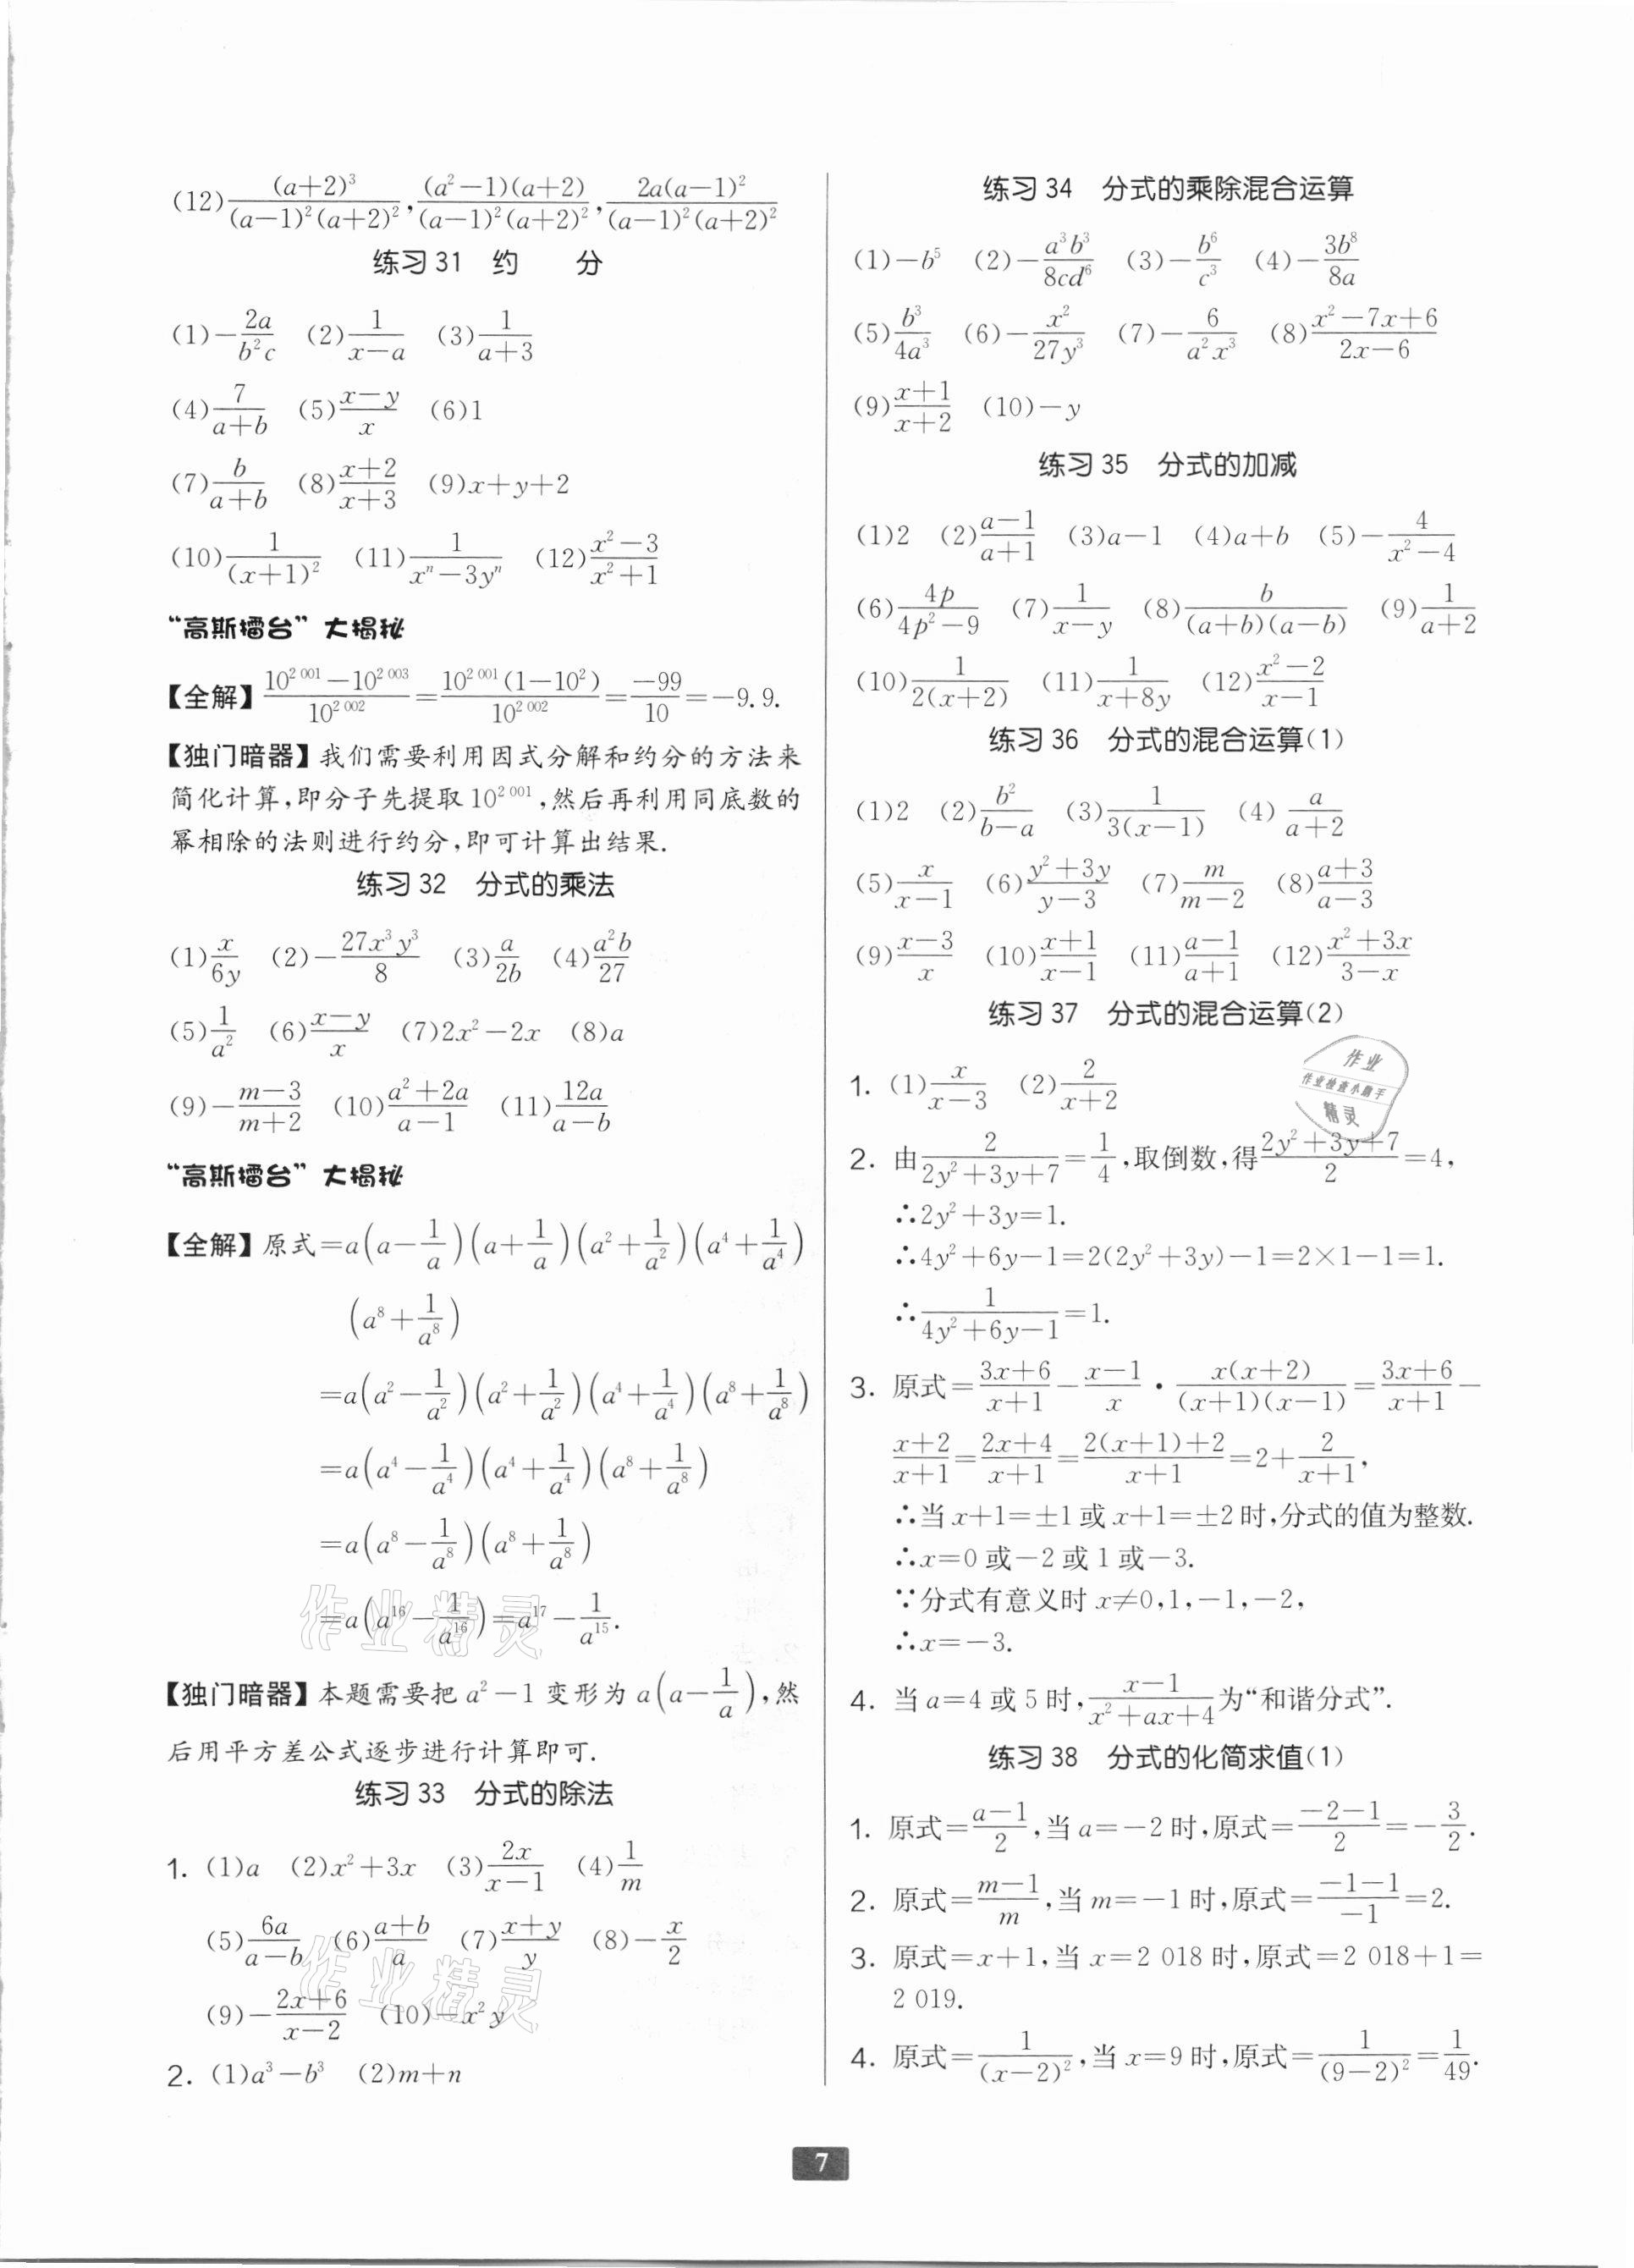 (12) $\frac{(a+2)^3}{(a-1)^2(a+2)^2}$, $\frac{(a^2-1)(a+2)}{(a-1)^2(a+2)^2}$, $\frac{2a(a-1)^2}{(a-1)^2(a+2)^2}$
练习 31　约　　分
(1) $-\frac{2a}{b^2c}$　(2) $\frac{1}{x-a}$　(3) $\frac{1}{a+3}$
(4) $\frac{7}{a+b}$　(5) $\frac{x-y}{x}$　(6) 1
(7) $\frac{b}{a+b}$　(8) $\frac{x+2}{x+3}$　(9) $x+y+2$
(10) $\frac{1}{(x+1)^2}$　(11) $\frac{1}{x^n-3y^n}$　(12) $\frac{x^2-3}{x^2+1}$
“高斯擂台”大揭秘
【全解】 $\frac{10^{2\,001}-10^{2\,003}}{10^{2\,002}}=\frac{10^{2\,001}(1-10^2)}{10^{2\,002}}=\frac{-99}{10}=-9.9.$
【独门暗器】我们需要利用因式分解和约分的方法来
简化计算,即分子先提取 $10^{2\,001}$,然后再利用同底数的
幂相除的法则进行约分,即可计算出结果.
练习 32　分式的乘法
(1) $\frac{x}{6y}$　(2) $-\frac{27x^3y^3}{8}$　(3) $\frac{a}{2b}$　(4) $\frac{a^2b}{27}$
(5) $\frac{1}{a^2}$　(6) $\frac{x-y}{x}$　(7) $2x^2-2x$　(8) $a$
(9) $-\frac{m-3}{m+2}$　(10) $\frac{a^2+2a}{a-1}$　(11) $\frac{12a}{a-b}$
“高斯擂台”大揭秘
【全解】原式 $=a\left(a-\frac{1}{a}\right)\left(a+\frac{1}{a}\right)\left(a^2+\frac{1}{a^2}\right)\left(a^4+\frac{1}{a^4}\right)$
$\left(a^8+\frac{1}{a^8}\right)$
$=a\left(a^2-\frac{1}{a^2}\right)\left(a^2+\frac{1}{a^2}\right)\left(a^4+\frac{1}{a^4}\right)\left(a^8+\frac{1}{a^8}\right)$
$=a\left(a^4-\frac{1}{a^4}\right)\left(a^4+\frac{1}{a^4}\right)\left(a^8+\frac{1}{a^8}\right)$
$=a\left(a^8-\frac{1}{a^8}\right)\left(a^8+\frac{1}{a^8}\right)$
$=a\left(a^{16}-\frac{1}{a^{16}}\right)=a^{17}-\frac{1}{a^{15}}.$
作业精灵
【独门暗器】本题需要把 $a^2-1$ 变形为 $a\left(a-\frac{1}{a}\right)$,然
后用平方差公式逐步进行计算即可.
练习 33　分式的除法
1. (1) $a$　(2) $x^2+3x$　(3) $\frac{2x}{x-1}$　(4) $\frac{1}{m}$
(5) $\frac{6a}{a-b}$　(6) $\frac{a+b}{a}$　(7) $\frac{x+y}{y}$　(8) $-\frac{x}{2}$
(9) $-\frac{2x+6}{x-2}$　(10) $-x^2y$
作业精灵
2. (1) $a^3-b^3$　(2) $m+n$
练习 34　分式的乘除混合运算
(1) $-b^5$　(2) $-\frac{a^3b^3}{8cd^6}$　(3) $-\frac{b^6}{c^3}$　(4) $-\frac{3b^8}{8a}$
(5) $\frac{b^3}{4a^3}$　(6) $-\frac{x^2}{27y^3}$　(7) $-\frac{6}{a^2x^3}$　(8) $\frac{x^2-7x+6}{2x-6}$
(9) $\frac{x+1}{x+2}$　(10) $-y$
练习 35　分式的加减
(1) 2　(2) $\frac{a-1}{a+1}$　(3) $a-1$　(4) $a+b$　(5) $-\frac{4}{x^2-4}$
(6) $\frac{4p}{4p^2-9}$　(7) $\frac{1}{x-y}$　(8) $\frac{b}{(a+b)(a-b)}$　(9) $\frac{1}{a+2}$
(10) $\frac{1}{2(x+2)}$　(11) $\frac{1}{x+8y}$　(12) $\frac{x^2-2}{x-1}$
练习 36　分式的混合运算(1)
(1) 2　(2) $\frac{b^2}{b-a}$　(3) $\frac{1}{3(x-1)}$　(4) $\frac{a}{a+2}$
(5) $\frac{x}{x-1}$　(6) $\frac{y^2+3y}{y-3}$　(7) $\frac{m}{m-2}$　(8) $\frac{a+3}{a-3}$
(9) $\frac{x-3}{x}$　(10) $\frac{x+1}{x-1}$　(11) $\frac{a-1}{a+1}$　(12) $\frac{x^2+3x}{3-x}$
练习 37　分式的混合运算(2)
作业
作业检查小助手
精灵
1. (1) $\frac{x}{x-3}$　(2) $\frac{2}{x+2}$
2. 由 $\frac{2}{2y^2+3y+7}=\frac{1}{4}$,取倒数,得 $\frac{2y^2+3y+7}{2}=4$,
∴$2y^2+3y=1.$
∴$4y^2+6y-1=2(2y^2+3y)-1=2\times1-1=1.$
∴$\frac{1}{4y^2+6y-1}=1.$
3. 原式 $=\frac{3x+6}{x+1}-\frac{x-1}{x}\cdot\frac{x(x+2)}{(x+1)(x-1)}=\frac{3x+6}{x+1}-$
$\frac{x+2}{x+1}=\frac{2x+4}{x+1}=\frac{2(x+1)+2}{x+1}=2+\frac{2}{x+1}$,
∴当 $x+1=\pm1$ 或 $x+1=\pm2$ 时,分式的值为整数.
∴$x=0$ 或 $-2$ 或 1 或 $-3$.
∵分式有意义时 $x\neq0,1,-1,-2$,
∴$x=-3.$
4. 当 $a=4$ 或 5 时,$\frac{x-1}{x^2+ax+4}$ 为“和谐分式”.
练习 38　分式的化简求值(1)
1. 原式 $=\frac{a-1}{2}$,当 $a=-2$ 时,原式 $=\frac{-2-1}{2}=-\frac{3}{2}.$
2. 原式 $=\frac{m-1}{m}$,当 $m=-1$ 时,原式 $=\frac{-1-1}{-1}=2.$
3. 原式 $=x+1$,当 $x=2\,018$ 时,原式 $=2\,018+1=$
2 019.
4. 原式 $=\frac{1}{(x-2)^2}$,当 $x=9$ 时,原式 $=\frac{1}{(9-2)^2}=\frac{1}{49}.$
7